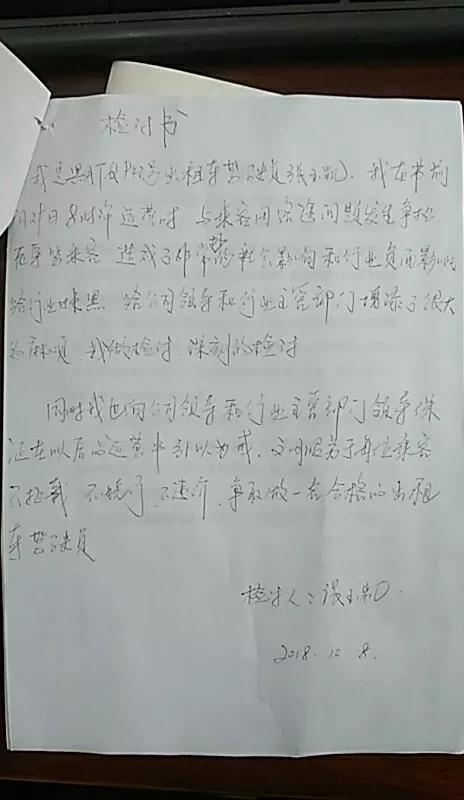 检讨书
我是黑 出租车驾驶员张玉 我在书
月 日8时许运营时 与乘客因路途问题发生争执
辱骂乘客 造成了非常 社会影响和行业负面影响
给行业抹黑 给公司领导和行业主管部门增添了很大
的麻烦 我做检讨 深刻的检讨
同时我也向公司领导和行业主管部门领导保
证在以后的运营中引以为戒，文明服务于每位乘客
不拒载 不绕行 不违价 争取做一名合格的出租
车驾驶员
检讨人：张玉
2018.10.8.